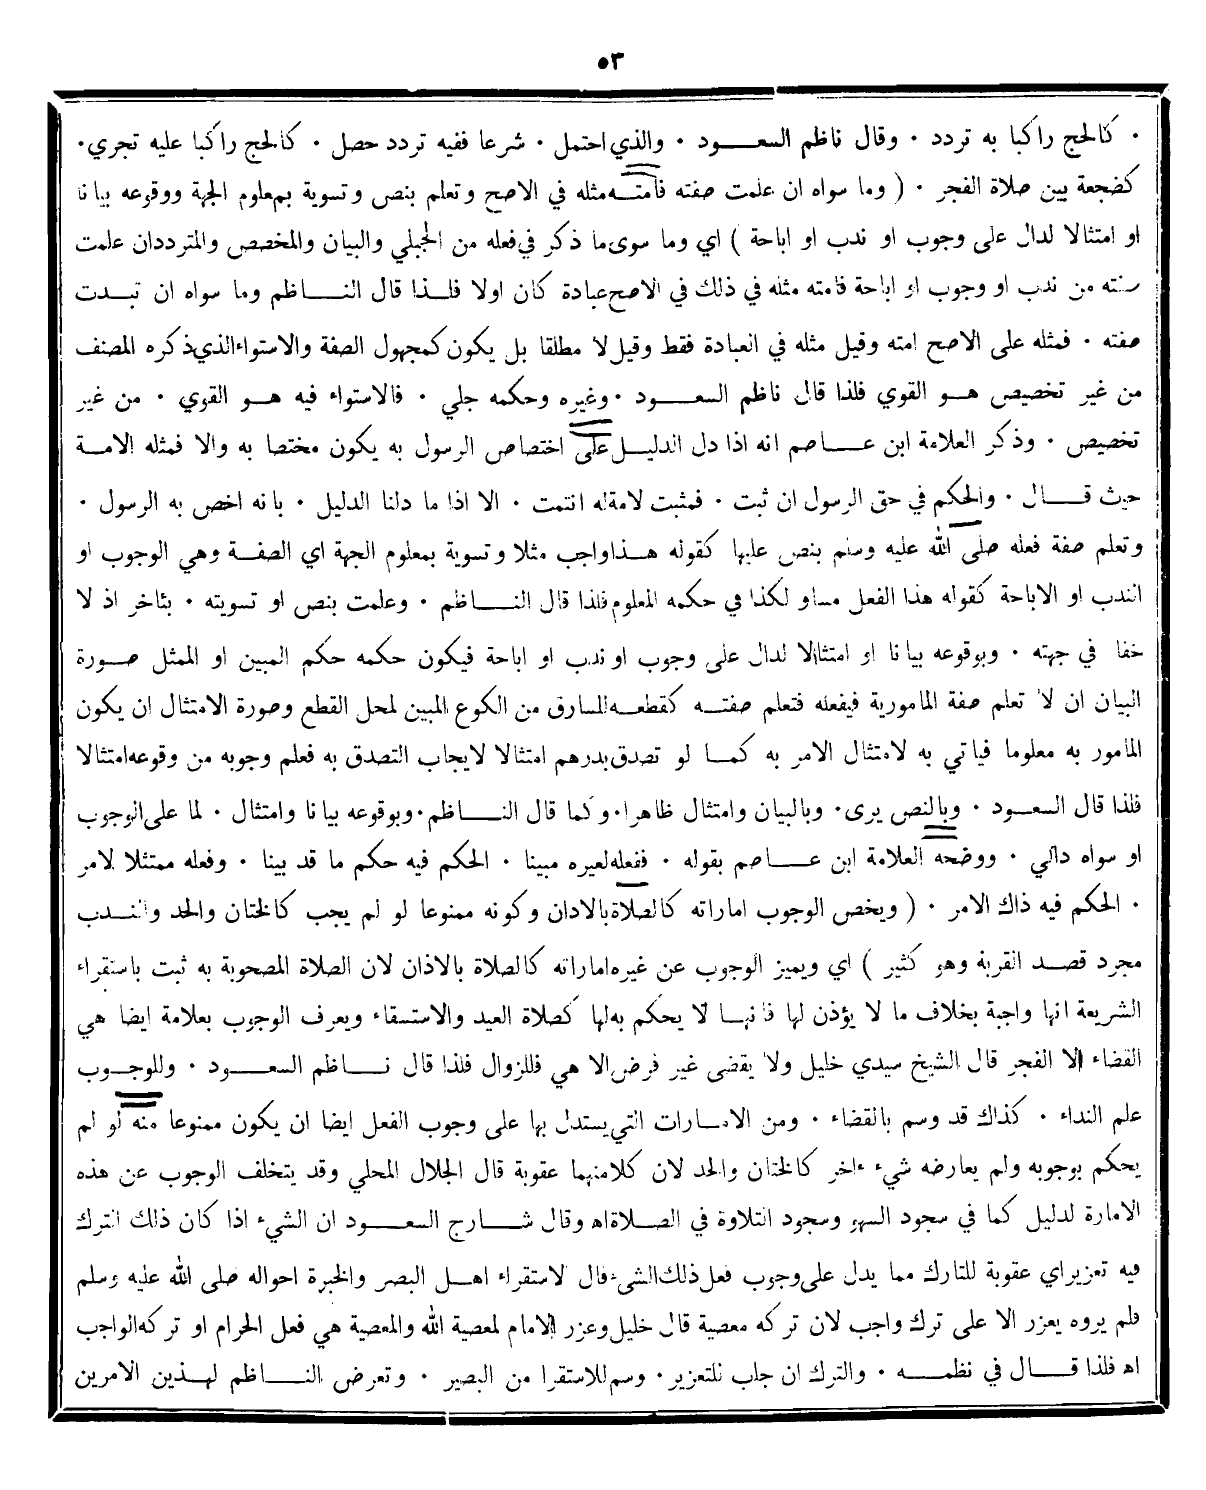 ٥٣
· كالحج راكبا به تردد · وقال ناظم السعود · والذي احتمل · شرعا ففيه تردد حصل · كالحج راكبا عليه تجري ·
كضجعة بين صلاة الفجر · ( وما سواه ان علمت صفته فامته مثله في الاصح وتعلم بنص وتسوية بمعلوم الجهة ووقوعه بيانا
او امتثالا لدال على وجوب او ندب او اباحة ) اي وما سوى ما ذكر في فعله من الجبلي والبيان والمخصص والمترددان علمت
سنته من ندب او وجوب او اباحة فامته مثله في ذلك في الاصح عبادة كان اولا فلذا قال الناظم وما سواه ان تبدت
صفته · فمثله على الاصح امته وقيل مثله في العبادة فقط وقيل لا مطلقا بل يكون كمجهول الصفة والاستواء الذي ذكره المصنف
من غير تخصيص هو القوي فلذا قال ناظم السعود · وغيره وحكمه جلي · فالاستواء فيه هو القوي · من غير
تخصيص · وذكر العلامة ابن عاصم انه اذا دل الدليل على اختصاص الرسول به يكون مختصا به والا فمثله الامة
حيث قال · والحكم في حق الرسول ان ثبت · فمثبت لامة له انتمت · الا اذا ما دلنا الدليل · بانه اخص به الرسول ·
وتعلم صفة فعله صلى الله عليه وسلم بنص عليها كقوله هذا واجب مثلا وتسوية بمعلوم الجهة اي الصفة وهي الوجوب او
الندب او الاباحة كقوله هذا الفعل مساو لكذا في حكمه المعلوم فلذا قال الناظم · وعلمت بنص او تسويته · بئاخر اذ لا
خفا في جهته · وبوقوعه بيانا او امتثالا لدال على وجوب او ندب او اباحة فيكون حكمه حكم المبين او الممثل صورة
البيان ان لا تعلم صفة المامورية فيفعله فتعلم صفته كقطعه السارق من الكوع المبين لمحل القطع وصورة الامتثال ان يكون
المامور به معلوما فياتي به لامتثال الامر به كما لو تصدق بدرهم امتثالا لايجاب التصدق به فعلم وجوبه من وقوعه امتثالا
فلذا قال السعود · وبالنص يرى · وبالبيان وامتثال ظاهرا · وكما قال الناظم · وبوقوعه بيانا وامتثال · لما على الوجوب
او سواه دالي · ووضحه العلامة ابن عاصم بقوله · ففعله لغيره مبينا · الحكم فيه حكم ما قد بينا · وفعله ممتثلا لامر
· الحكم فيه ذاك الامر · ( ويخص الوجوب اماراته كالصلاة بالاذان وكونه ممنوعا لو لم يجب كالختان والحد والندب
مجرد قصد القربة وهو كثير ) اي ويميز الوجوب عن غيره اماراته كالصلاة بالاذان لان الصلاة المصحوبة به ثبت باستقراء
الشريعة انها واجبة بخلاف ما لا يؤذن لها فانها لا يحكم به لها كصلاة العيد والاستسقاء ويعرف الوجوب بعلامة ايضا هي
القضاء الا الفجر قال الشيخ سيدي خليل ولا يقضى غير فرض الا هي فللزوال فلذا قال ناظم السعود · وللوجوب
علم النداء · كذاك قد وسم بالقضاء · ومن الامارات التي يستدل بها على وجوب الفعل ايضا ان يكون ممنوعا منه لو لم
يحكم بوجوبه ولم يعارضه شيء ءاخر كالختان والحد لان كلا منهما عقوبة قال الجلال المحلي وقد يتخلف الوجوب عن هذه
الامارة لدليل كما في سجود السهو وسجود التلاوة في الصلاة اه وقال شارح السعود ان الشيء اذا كان ذلك الترك
فيه تعزير اي عقوبة للتارك مما يدل على وجوب فعل ذلك الشيء قال لاستقراء اهل البصر والخبرة احواله صلى الله عليه وسلم
فلم يروه يعزر الا على ترك واجب لان تركه معصية قال خليل وعزر الامام لمعصية الله والمعصية هي فعل الحرام او تركه الواجب
اه فلذا قال في نظمه · والترك ان جلب للتعزير · وسم للاستقرا من البصير · وتعرض الناظم لهذين الامرين